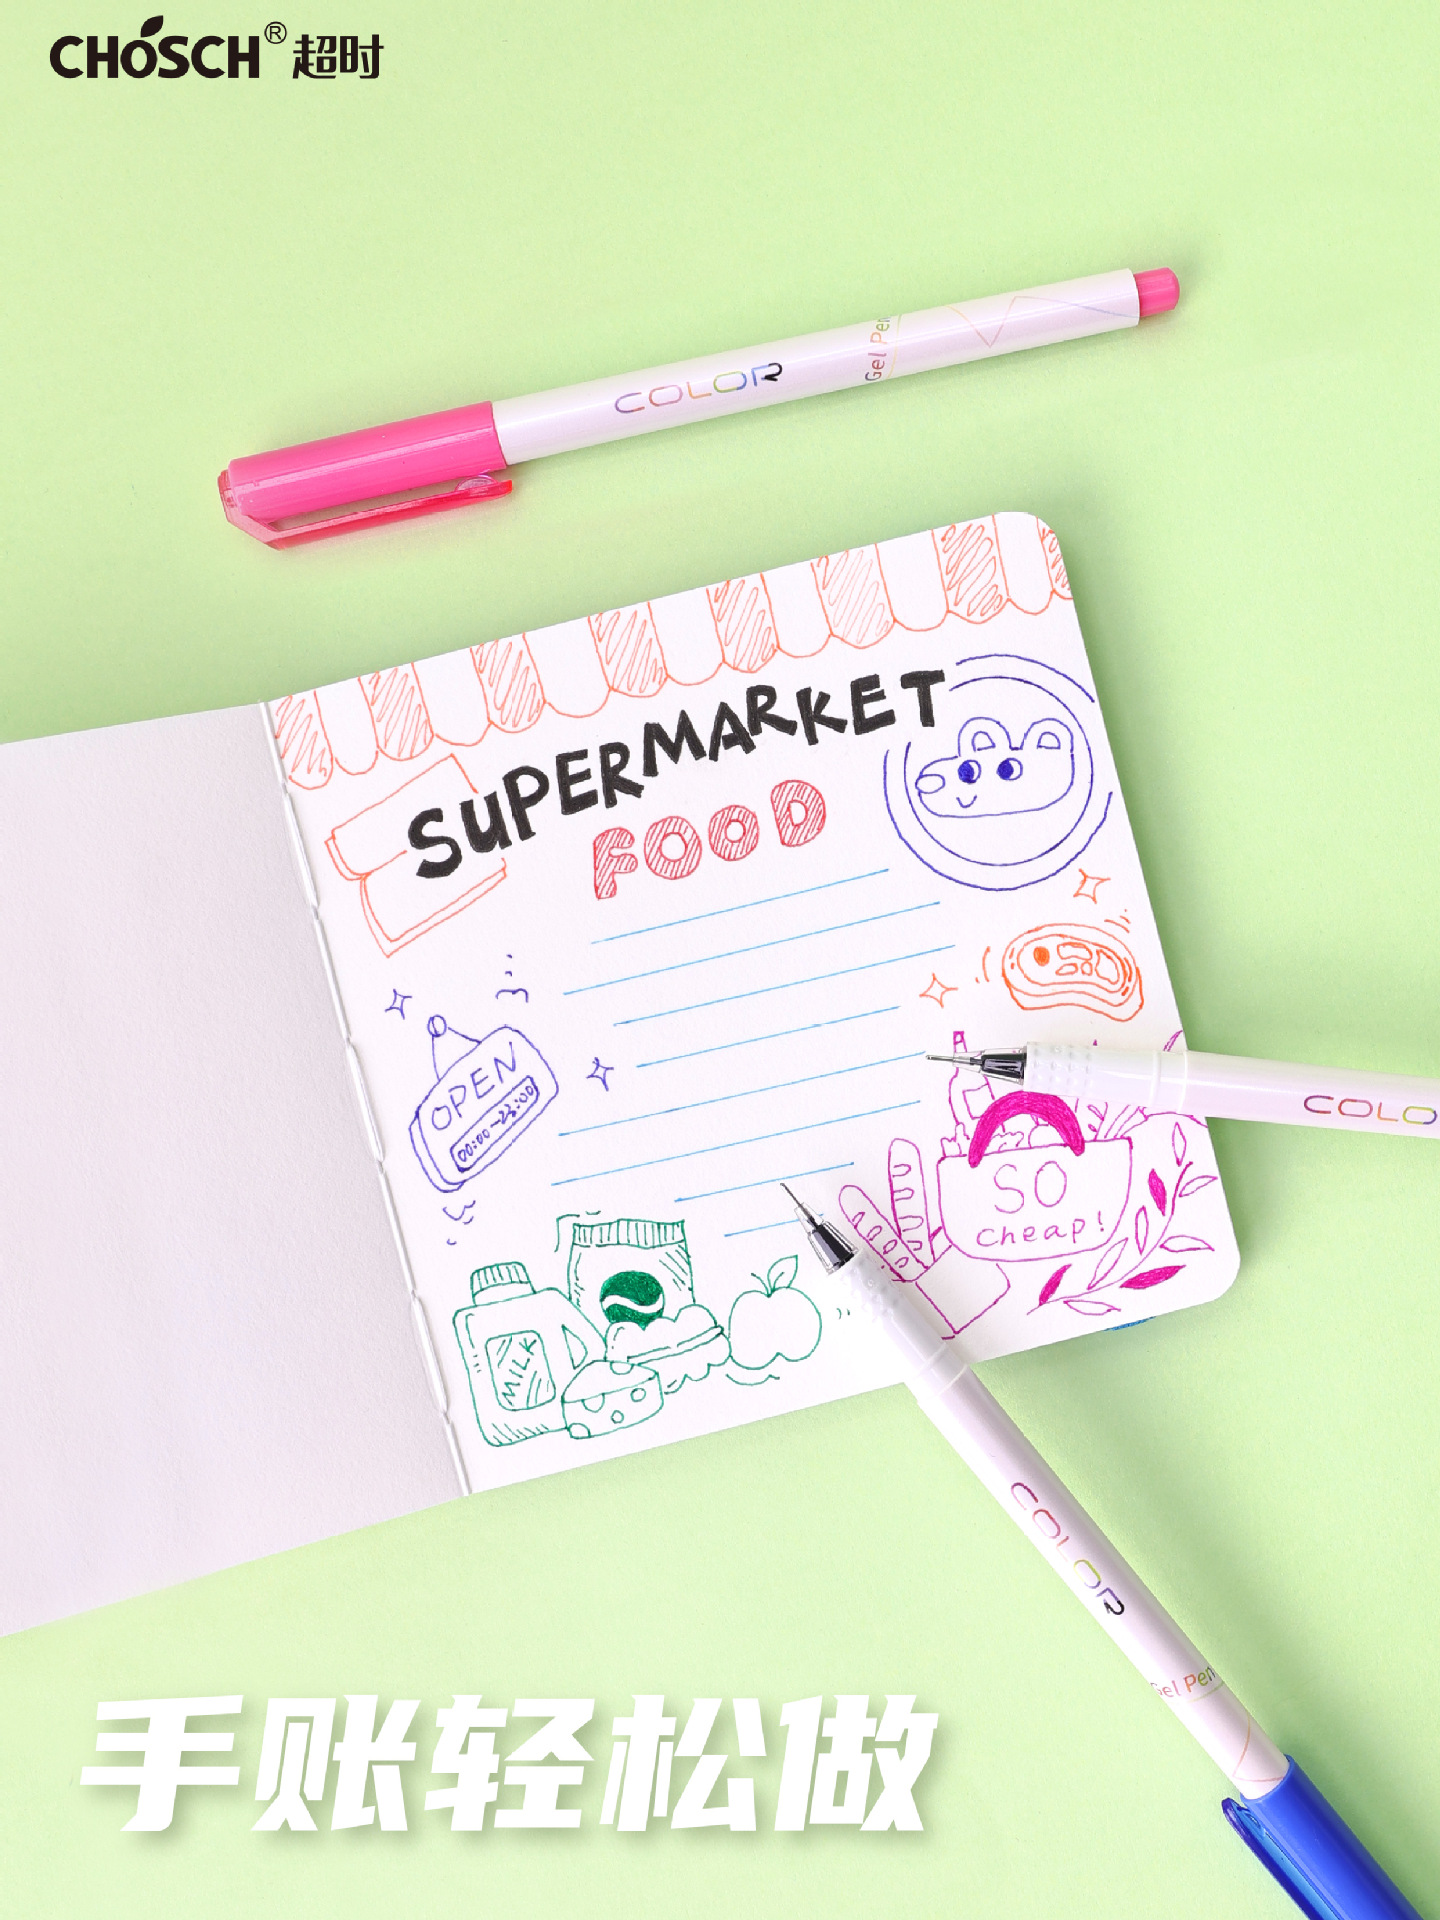 CHOSCH® 超时
COLOR
Gel Pen
SUPERMARKET
FOOD
OPEN
00:00-23:00
SO
cheap!
MILK
COLO
COLOR
Gel Pen
手账轻松做